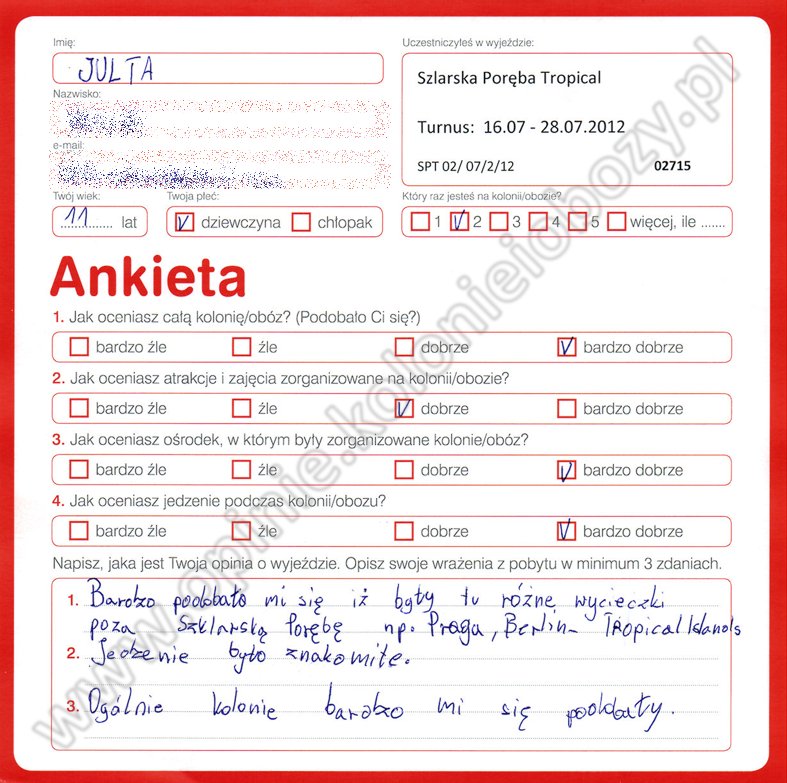 Imię:
JULTA
Uczestniczyłeś w wyjeździe:
Szlarska Poręba Tropical
Turnus: 16.07 - 28.07.2012
SPT 02/ 07/2/12 02715
Nazwisko:
e-mail:
Twój wiek: Twoja płeć: Który raz jesteś na kolonii/obozie?
11 lat dziewczyna chłopak 1 2 3 4 5 więcej, ile .......
Ankieta
1. Jak oceniasz całą kolonię/obóz? (Podobało Ci się?)
bardzo źle źle dobrze bardzo dobrze
2. Jak oceniasz atrakcje i zajęcia zorganizowane na kolonii/obozie?
bardzo źle źle dobrze bardzo dobrze
3. Jak oceniasz ośrodek, w którym były zorganizowane kolonie/obóz?
bardzo źle źle dobrze bardzo dobrze
4. Jak oceniasz jedzenie podczas kolonii/obozu?
bardzo źle źle dobrze bardzo dobrze
Napisz, jaka jest Twoja opinia o wyjeździe. Opisz swoje wrażenia z pobytu w minimum 3 zdaniach.
1. Bardzo podobało mi się iż były tu różne wycieczki
poza Szklarską Porębę np. Praga, Berlin- Tropical Islands
2. Jedzenie było znakomite.
3. Ogólnie kolonie bardzo mi się podobały.
www.opinie.kolonieiobozy.pl